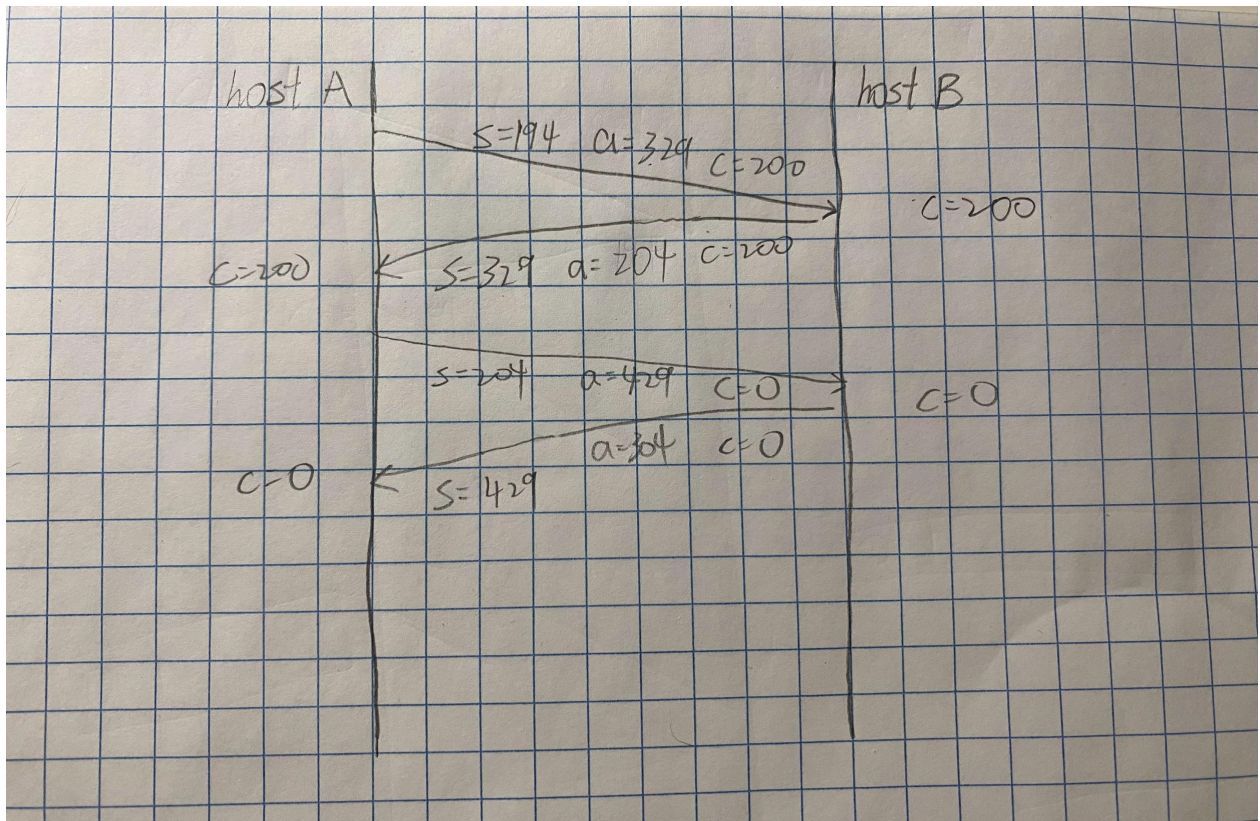 host A host B
S=194 a=329 C=200
C=200
C=200 S=329 a=204 C=200
S=204 a=429 C=0
C=0
a=304 C=0
C=0 S=429